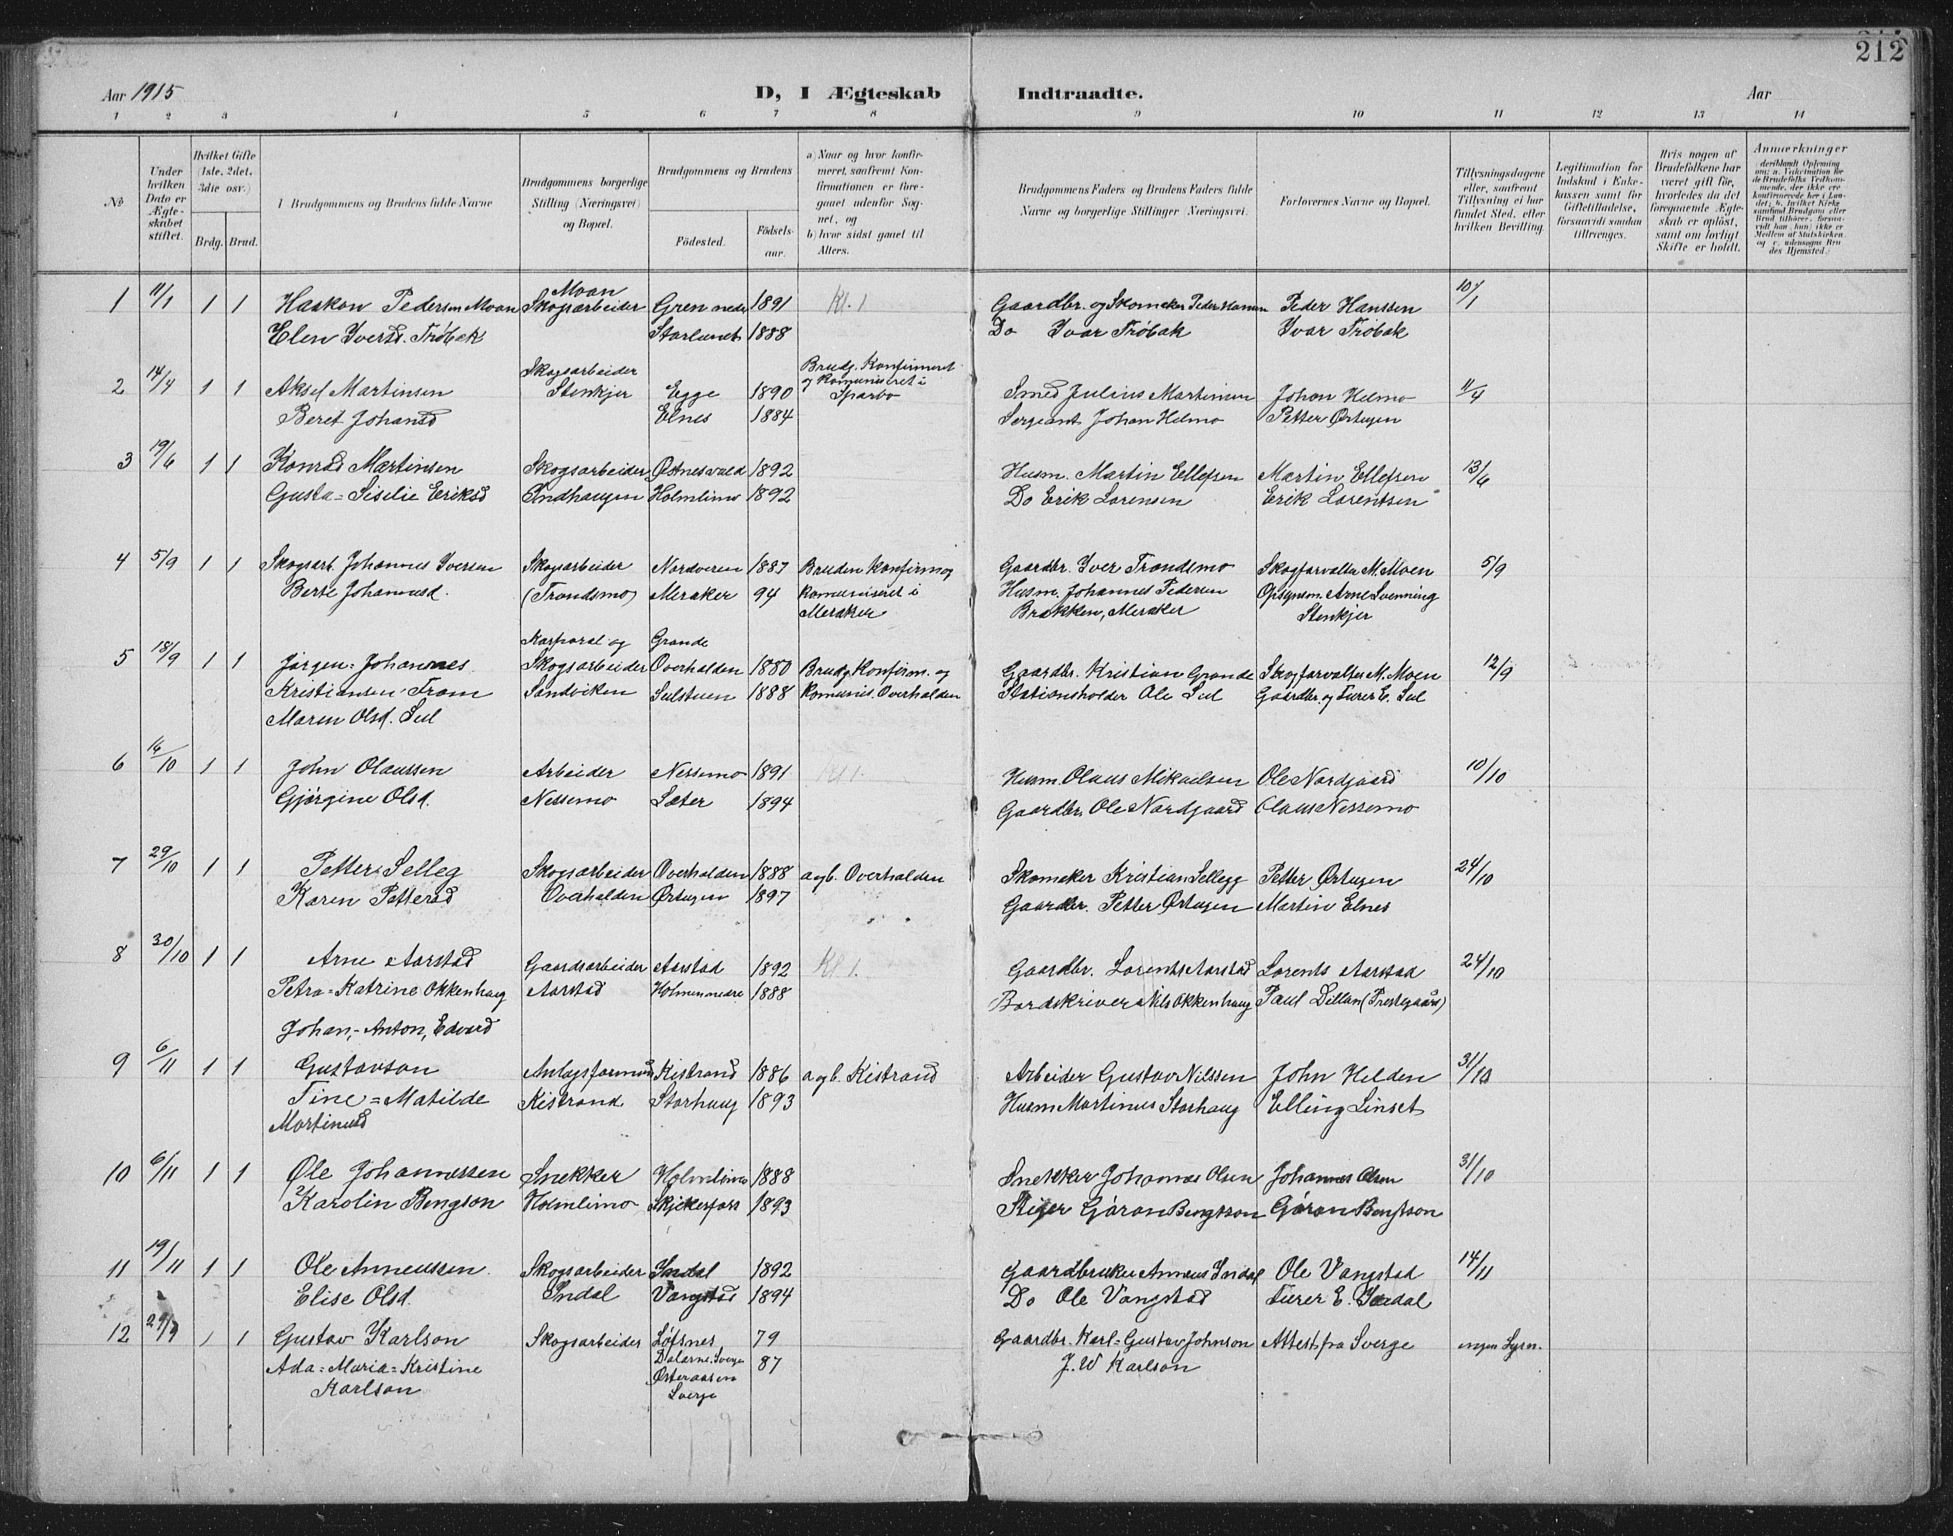 212
Aar 1915 D, I Ægteskab Indtraadte. Aar
1 2 3 4 5 6 7 8 9 10 11 12 13 14
№
Under hvilken Dato er Ægteskabet stiftet.
Hvilket Gifte (1ste, 2det, 3die osv.)
Brdg. Brud.
Brudgommens og Brudens fulde Navne
Brudgommens borgerlige Stilling (Næringsvei) og Bopæl.
Brudgommens og Brudens
Fødested. Fødselsaar.
a) Naar og hvor konfirmeret, saafremt Konfirmationen er foregaaet udenfor Sognet, og
b) hvor sidst gaaet til Alters.
Brudgommens Faders og Brudens Faders fulde Navne og borgerlige Stillinger (Næringsvei).
Forlovernes Navne og Bopæl.
Tillysningsdagene eller, saafremt Tillysning ei har fundet Sted, efter hvilken Bevilling.
Legitimation for Indskud i Enkekassen samt for Giftetilladelse, forsaavidt saadan tiltrænges.
Hvis nogen af Brudefolkene har været gift før, hvorledes da det foregaaende Ægteskab er opløst, samt om lovligt Skifte er holdt.
Anmærkninger
Moan
1 11/1 1 1 Haakon Pedersen Moan Skogsarbeider Gren nedre 1891 Kl. 1 Gaardbr. og Skomaker Peder Hansen Peder Hanssen 10/1
Elen Iversd. Trøbak Storlunet 1888 Do Ivar Trøbak Ivar Trøbak
2 14/4 1 1 Aksel Martinsen Skogsarbeider Stenkjer Egge 1890 Brudg. Konfirmeret og komuniseret i Sparbo Smed Julius Martinsen Johan Helmo 11/4
Beret Johansd Elnes 1884 Sergeant Johan Helmo Petter Ørtugen
3 19/6 1 1 Konrad Martinsen Skogsarbeider Østnesvald 1892 Husm. Martin Ellefsen Martin Ellefsen 13/6
Gusta=Siselie Eriksd Indhaugen Holmlimo 1892 Do Erik Lorensen Erik Lorentsen
4 5/9 1 1 Skogsarb. Johannes Iversen Skogsarbeider Nordveren 1887 Bruden konfirm og Gaardbr. Iver Trondsmo Skogforvalter M. Moen 5/9
Berte Johannesd. (Trondsmo) Meraker 94 komuniseret i Husm. Johannes Pedersen Opsynsm. Arne Svenning
Meraker Brækken, Meraker Stenkjer
Korporal og Grande
5 18/9 1 1 Jørgen=Johannes Skogsarbeider Overhalden 1880 Brudg. Konfirm. og Gaardbr. Kristian Grande Skogforvalter M. Moen 12/9
Kristiansen Trom Sandviken Sulstuen 1888 Komunis. Overhalden Stationsholder Ole Sul Gaardbr. og Lærer E. Sul
Maren Olsd. Sul
6 16/10 1 1 John Olaussen Arbeider Nessemo 1891 Kl 1. Husm. Olaus Mikaelsen Ole Nordgaard 10/10
Gjørgine Olsd. Nessemo Sæter 1894 Gaardbr. Ole Nordgaard Olaus Nessemo
7 29/10 1 1 Petter Selleg Skogsarbeider Overhalden 1888 a og b. Overhalden Skomaker Kristian Sellegg Petter Ørtugen 24/10
Karen Pettersd Overhalden Ørtugen 1897 Gaardbr. Petter Ørtugen Martin Elnes
8 30/10 1 1 Arne Aarstad Gaardsarbeider Aarstad 1892 Kl 1. Gaardbr. Lorents Aarstad Lorents Aarstad 24/10
Petra=Katrine Okkenhaug Aarstad 1888 Bordskriver Nils Okkenhaug Paul Dillan (Prestegaard)
Johan,-Anton, Edvard
9 6/11 1 1 Gustavson Anlægsformand Kistrand 1886 a og b. Kistrand Arbeider Gustav Nilssen John Helden 31/10
Tine=Matilde Kistrand Storhaug 1893 Husm Martinus Storhaug Elling Linset
Martinusd
10 6/11 1 1 Ole Johannessen Snekker Holmlimo 1888 Snekker Johannes Olsen Johannes Olsen 31/10
Karolin Bengson Holmlimo Skjækerfoss 1893 Stiger Gøran Bengtsson Gøran Bengtson
11 19/11 1 1 Ole Anneussen Skogsarbeider Indal 1892 Gaardbruker Anneus Indal Ole Vangstad 14/11
Elise Olsd. Indal Vangstad 1894 Do Ole Vangstad Lærer E. Indal
12 29/9 1 1 Gustav Karlson Skogsarbeider Løfsnes 79 Gaardbr. Karl=Gustav Johnson Attest fra Sverge ingen Lysn.
Ada=Maria=Kristine Dalarne Sverge 87 J. W Karlson
Karlson Østeraasen
Sverge